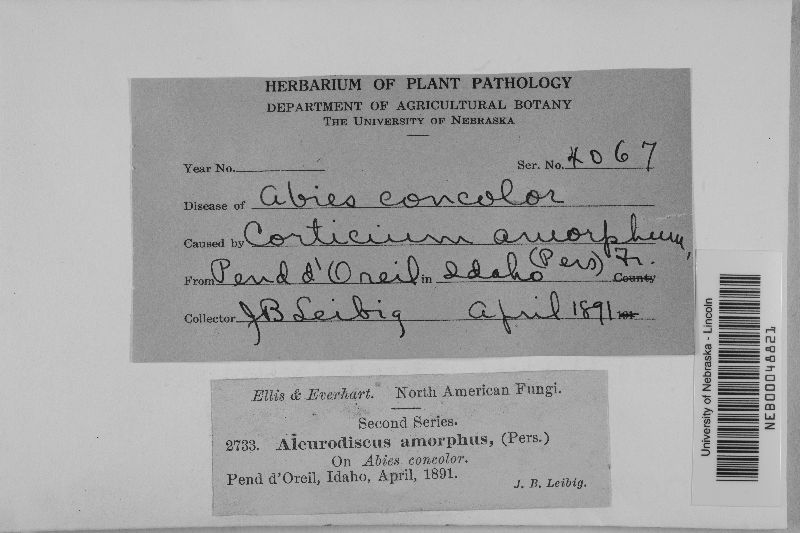 HERBARIUM OF PLANT PATHOLOGY
DEPARTMENT OF AGRICULTURAL BOTANY
THE UNIVERSITY OF NEBRASKA
Year No. Ser. No. 4067
Disease of Abies concolor
Caused by Corticium amorphum,
From Pend d'Oreil in Idaho (Pers) Fr. County
Collector J B Leibig April 1891
Ellis & Everhart. North American Fungi.
Second Series.
2733. Aleurodiscus amorphus, (Pers.)
On Abies concolor.
Pend d'Oreil, Idaho, April, 1891.
J. B. Leibig.
University of Nebraska - Lincoln
NEB00048821